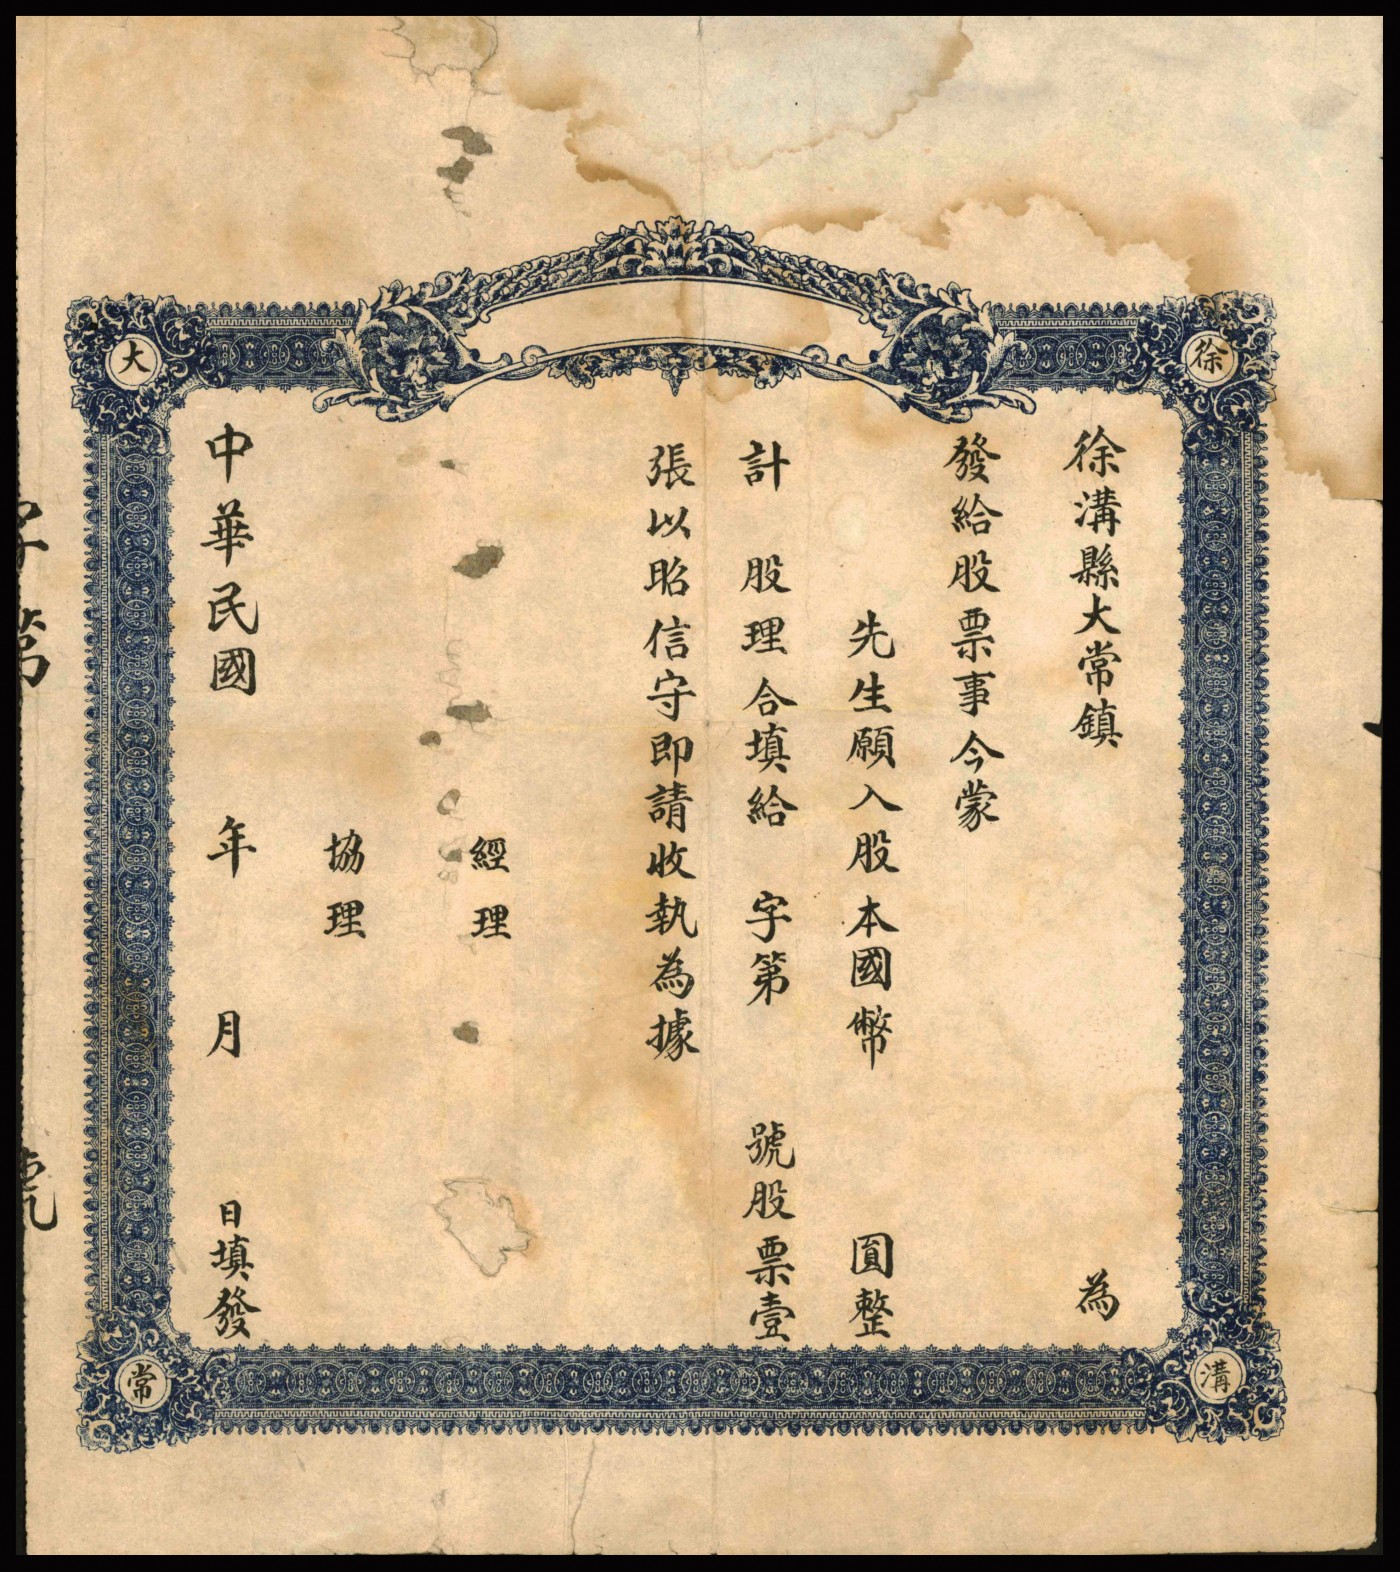 徐溝縣大常鎮 為
發給股票事今蒙
先生願入股本國幣 圓整
計 股理合填給 字第 號股票壹
張以昭信守即請收執為據
經理
協理
中華民國 年 月 日填發
徐
溝
大
常
字第 號